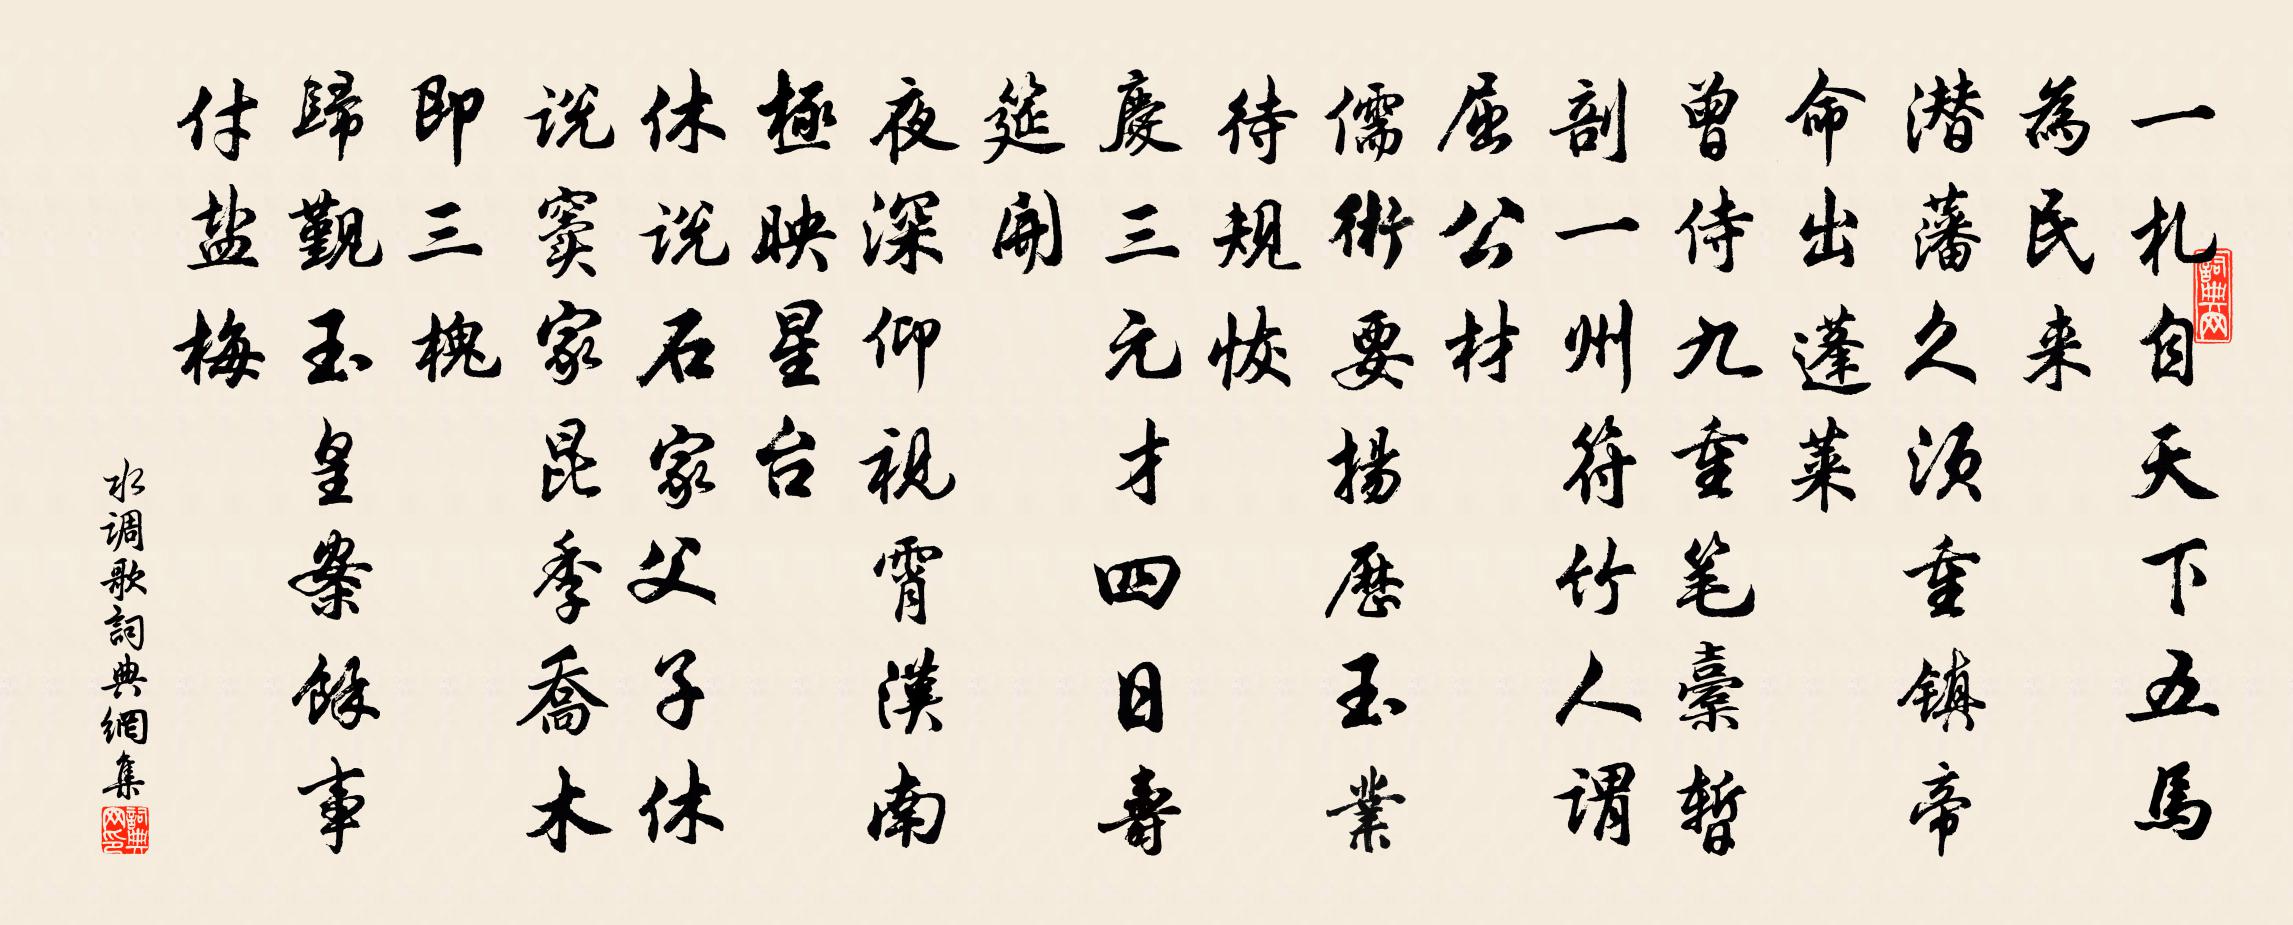 一札自天下五馬
為民来
潜藩久须重镇帝
命出蓬莱
曾侍九重笔橐暫
剖一州符竹人谓
屈公材
儒術要揚歷玉業
待規恢
慶三元才四日壽
筵開
夜深仰視霄漢南
極映星台
休说石家父子休
说窦家昆季喬木
即三槐
歸覲玉皇案餘事
付盐梅
水调歌詞典網集
詞典网
詞典网印